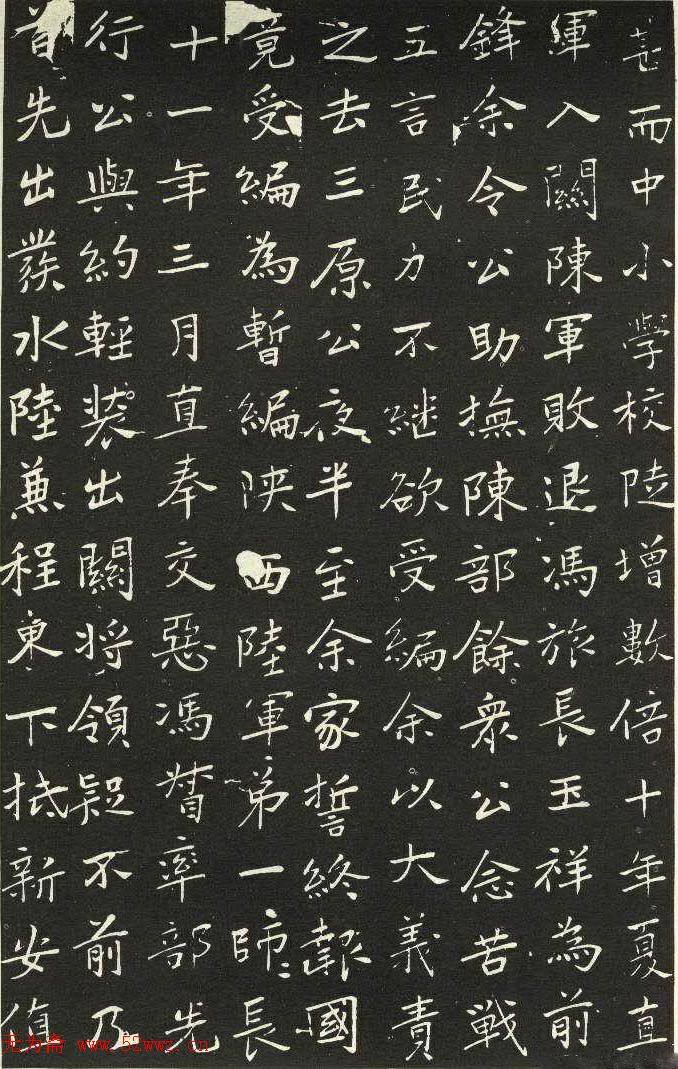 而中小學校陡增數倍十年夏直
軍入關陳軍敗退馮旅長玉祥為前
鋒余令公助撫陳部餘衆公念苦戰
五言民力不継欲受編余以大義責
之去三原公夜半至余家誓終報國
竟受編為暫編陝西陸軍弟一師〻長
十一年三月直奉交惡馮督率部先
行公與約輕装出關将領疑不前乃
首先出發水陸兼程東下抵新安偵
无为斋 www.52wwz.cn